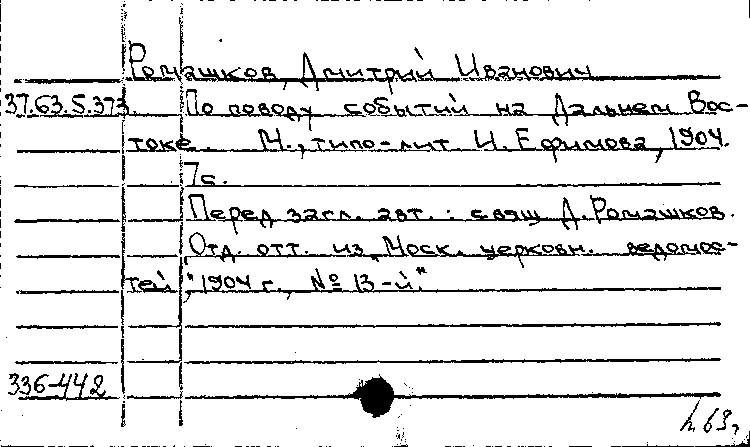 Ромашков, Дмитрий Иванович
37.63.5.373. По поводу событий на Дальнем Вос-
токе. М., типо-лит И. Ефимова, 1904.
7с.
Перед загл. авт.: свящ Д. Ромашков.
Отд. отт. из „Моск. церковн. ведомос-
тей", 1904 г., № 13-й."
336-442